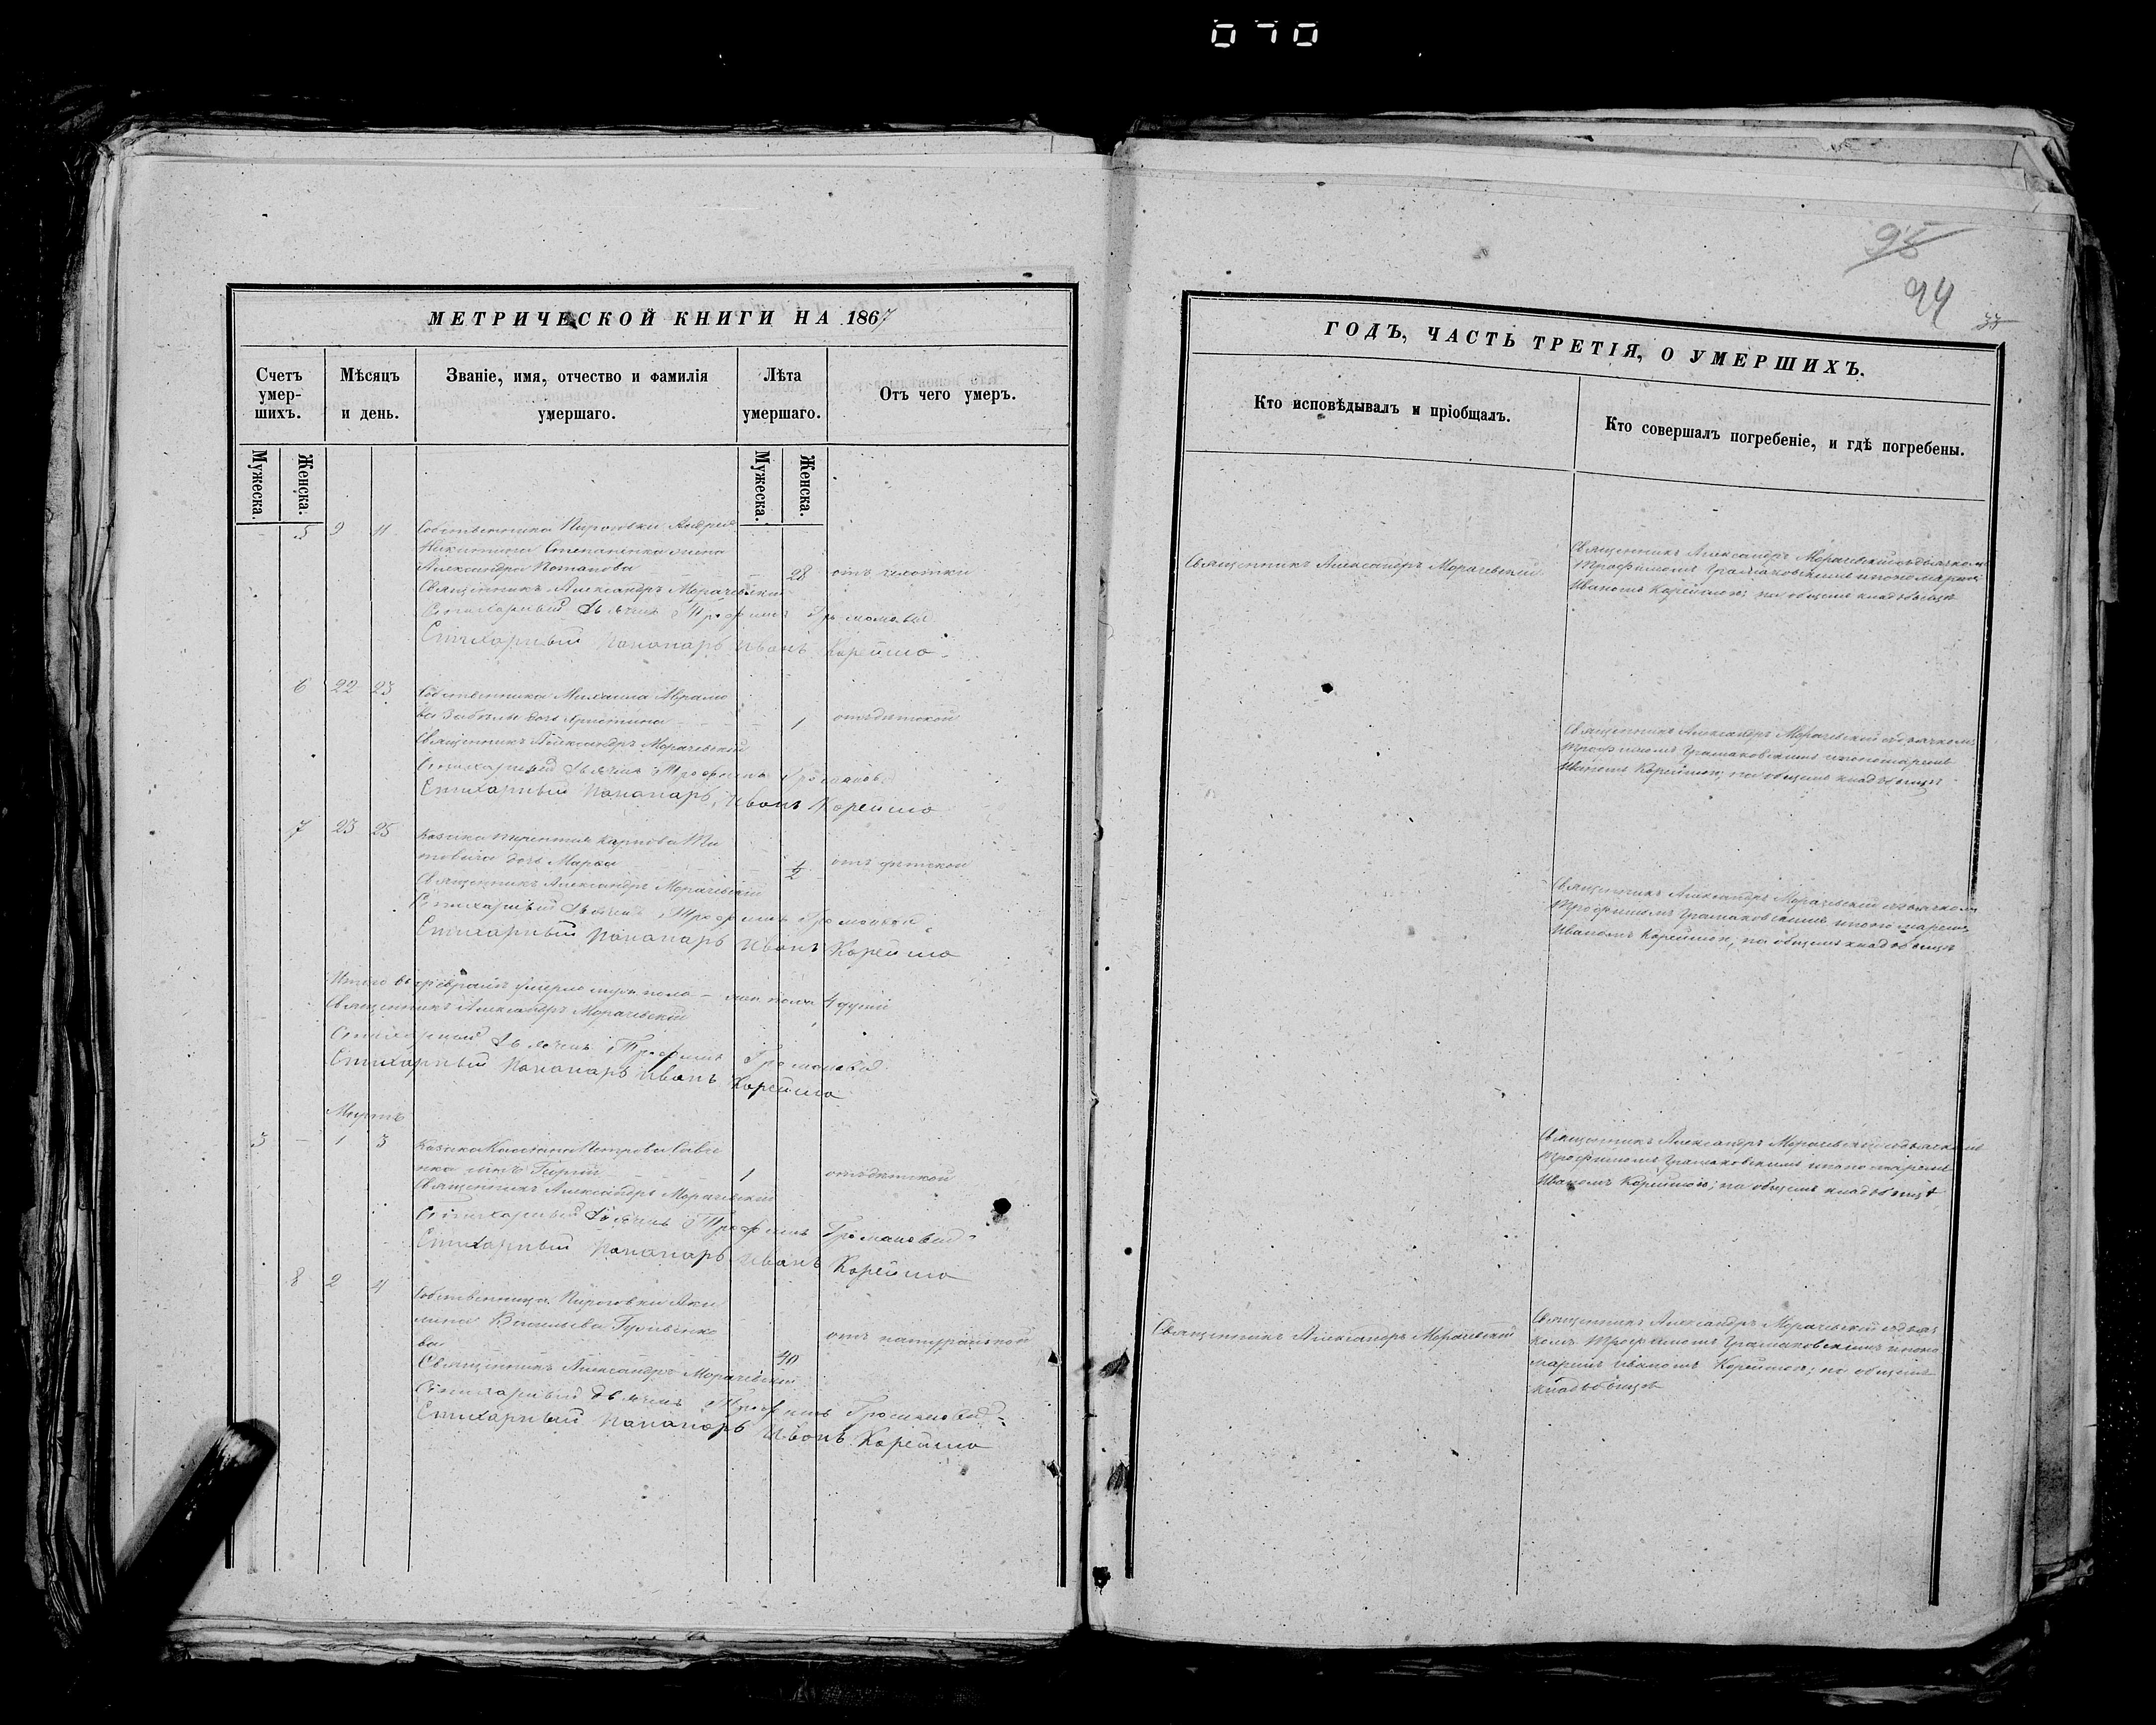 070
95
94
33
МЕТРИЧЕСКОЙ КНИГИ НА 1867
Счетъ умер-шихъ.
Мѣсяцъ и день.
Званіе, имя, отчество и фамилія умершаго.
Лѣта умершаго.
Отъ чего умеръ.
Мужеска.
Женска.
Мужеска.
Женска.
5 9 11 Собственника Пироговки Андрея
Никитина Степаненка жена
Александра Потапова 28 отъ чахотки
Священникъ Александръ Морачевскій
Стихарный Дьячекъ Трофимъ
Стихарный Понамарь Иванъ Корейшо
6 22 23 Собственника Михаила Аврамо
ва дочь Христина 1 отъ дѣтской
Священникъ Александръ Морачевскій
Стихарный Дьячекъ Трофимъ
Стихарный Понамарь Иванъ Корейшо
7 23 25 Козака Терентія Карпова Ти
товича дочь Марѳа 1/2 отъ дѣтской
Священникъ Александръ Морачевскій
Стихарный Дьячекъ Трофимъ
Стихарный Понамарь Иванъ Корейшо
Итого въ февралѣ умерло муж. пола – жен. пола 4 души
Священникъ Александръ Морачевскій
Стихарный Дьячекъ Трофимъ
Стихарный Понамарь Иванъ Корейшо
Мартъ
3 – 1 3 Козака Касіана Петрова Савче
нка сынъ 1 отъ дѣтской
Священникъ Александръ Морачевскій
Стихарный Дьячекъ Трофимъ
Стихарный Понамарь Иванъ Корейшо
8 2 4 Собственница Пироговки Аки
лина Васильева
ва 40 отъ натуральной
Священникъ Александръ Морачевскій
Стихарный Дьячекъ Трофимъ
Стихарный Понамарь Иванъ Корейшо
ГОДЪ, ЧАСТЬ ТРЕТІЯ, О УМЕРШИХЪ.
Кто исповѣдывалъ и пріобщалъ.
Кто совершалъ погребеніе, и гдѣ погребены.
Священникъ Александръ Морачевскій
Священникъ Александръ Морачевскій съ дьячкомъ
Трофимомъ Грамаковскимъ и пономаремъ
Иваномъ Корейшою; на общемъ кладбищѣ
Священникъ Александръ Морачевскій съ дьячкомъ
Трофимомъ Грамаковскимъ и пономаремъ
Иваномъ Корейшою; на общемъ кладбищѣ
Священникъ Александръ Морачевскій съ дьячкомъ
Трофимомъ Грамаковскимъ и пономаремъ
Иваномъ Корейшою; на общемъ кладбищѣ
Священникъ Александръ Морачевскій съ дьячкомъ
Трофимомъ Грамаковскимъ и пономаремъ
Иваномъ Корейшою; на общемъ кладбищѣ
Священникъ Александръ Морачевскій
Священникъ Александръ Морачевскій съ дьяч
комъ Трофимомъ Грамаковскимъ и поно
маремъ Иваномъ Корейшою; на общемъ
кладбищѣ